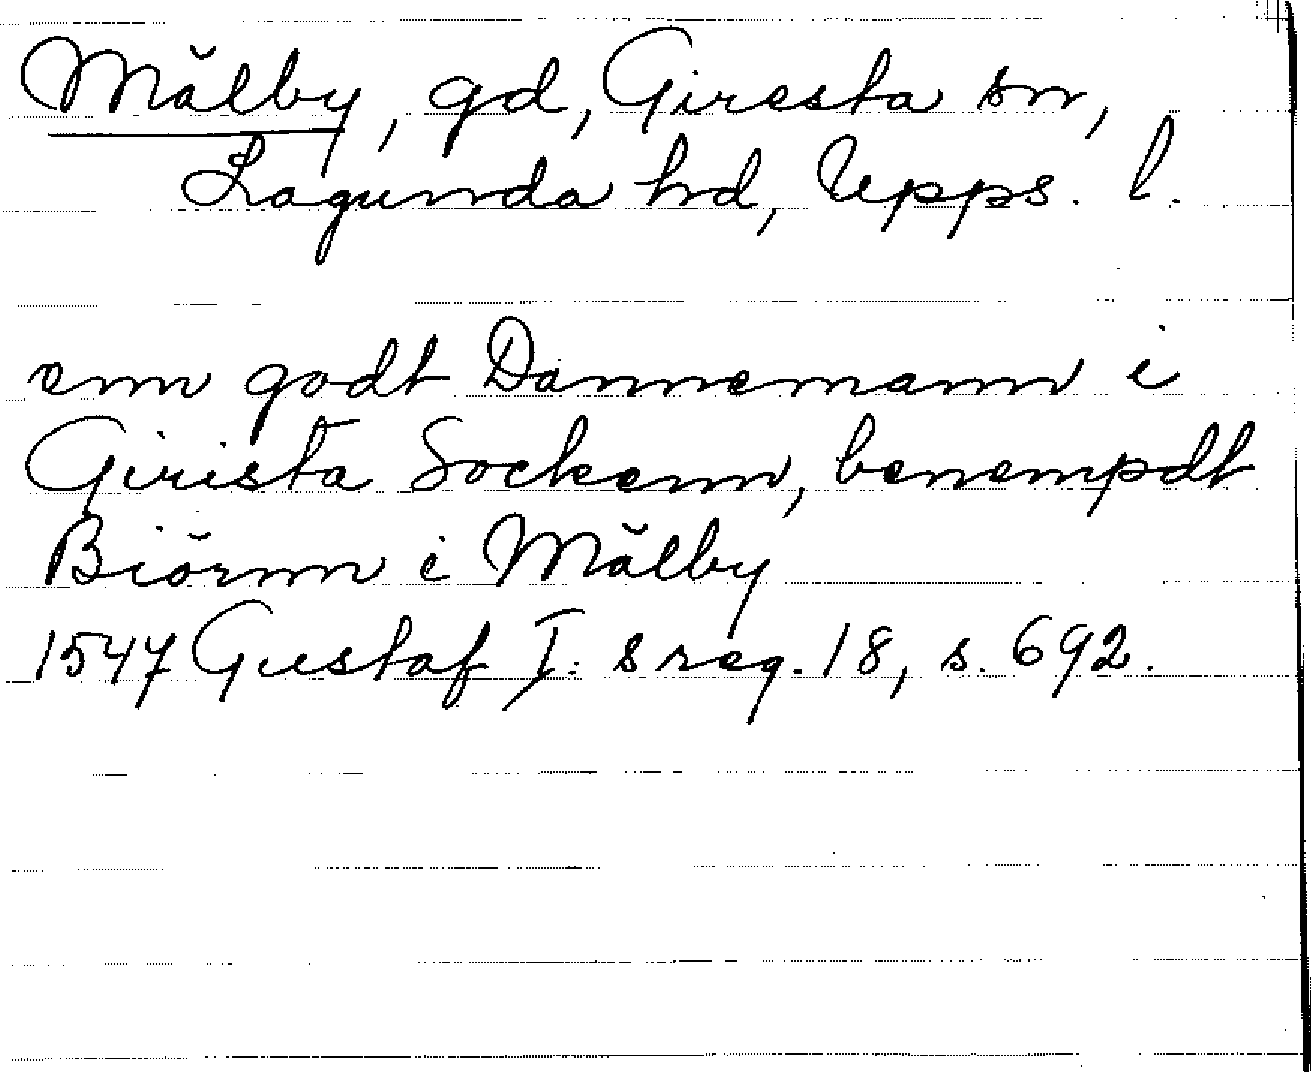 Mälby, gd, Giresta sn,
Lagunda hd, Upps. l.
enn godt Dannemann i
Girista Sockenn, benempdt
Biörnn i Mälby
1547 Gustaf I:s reg. 18, s. 692.